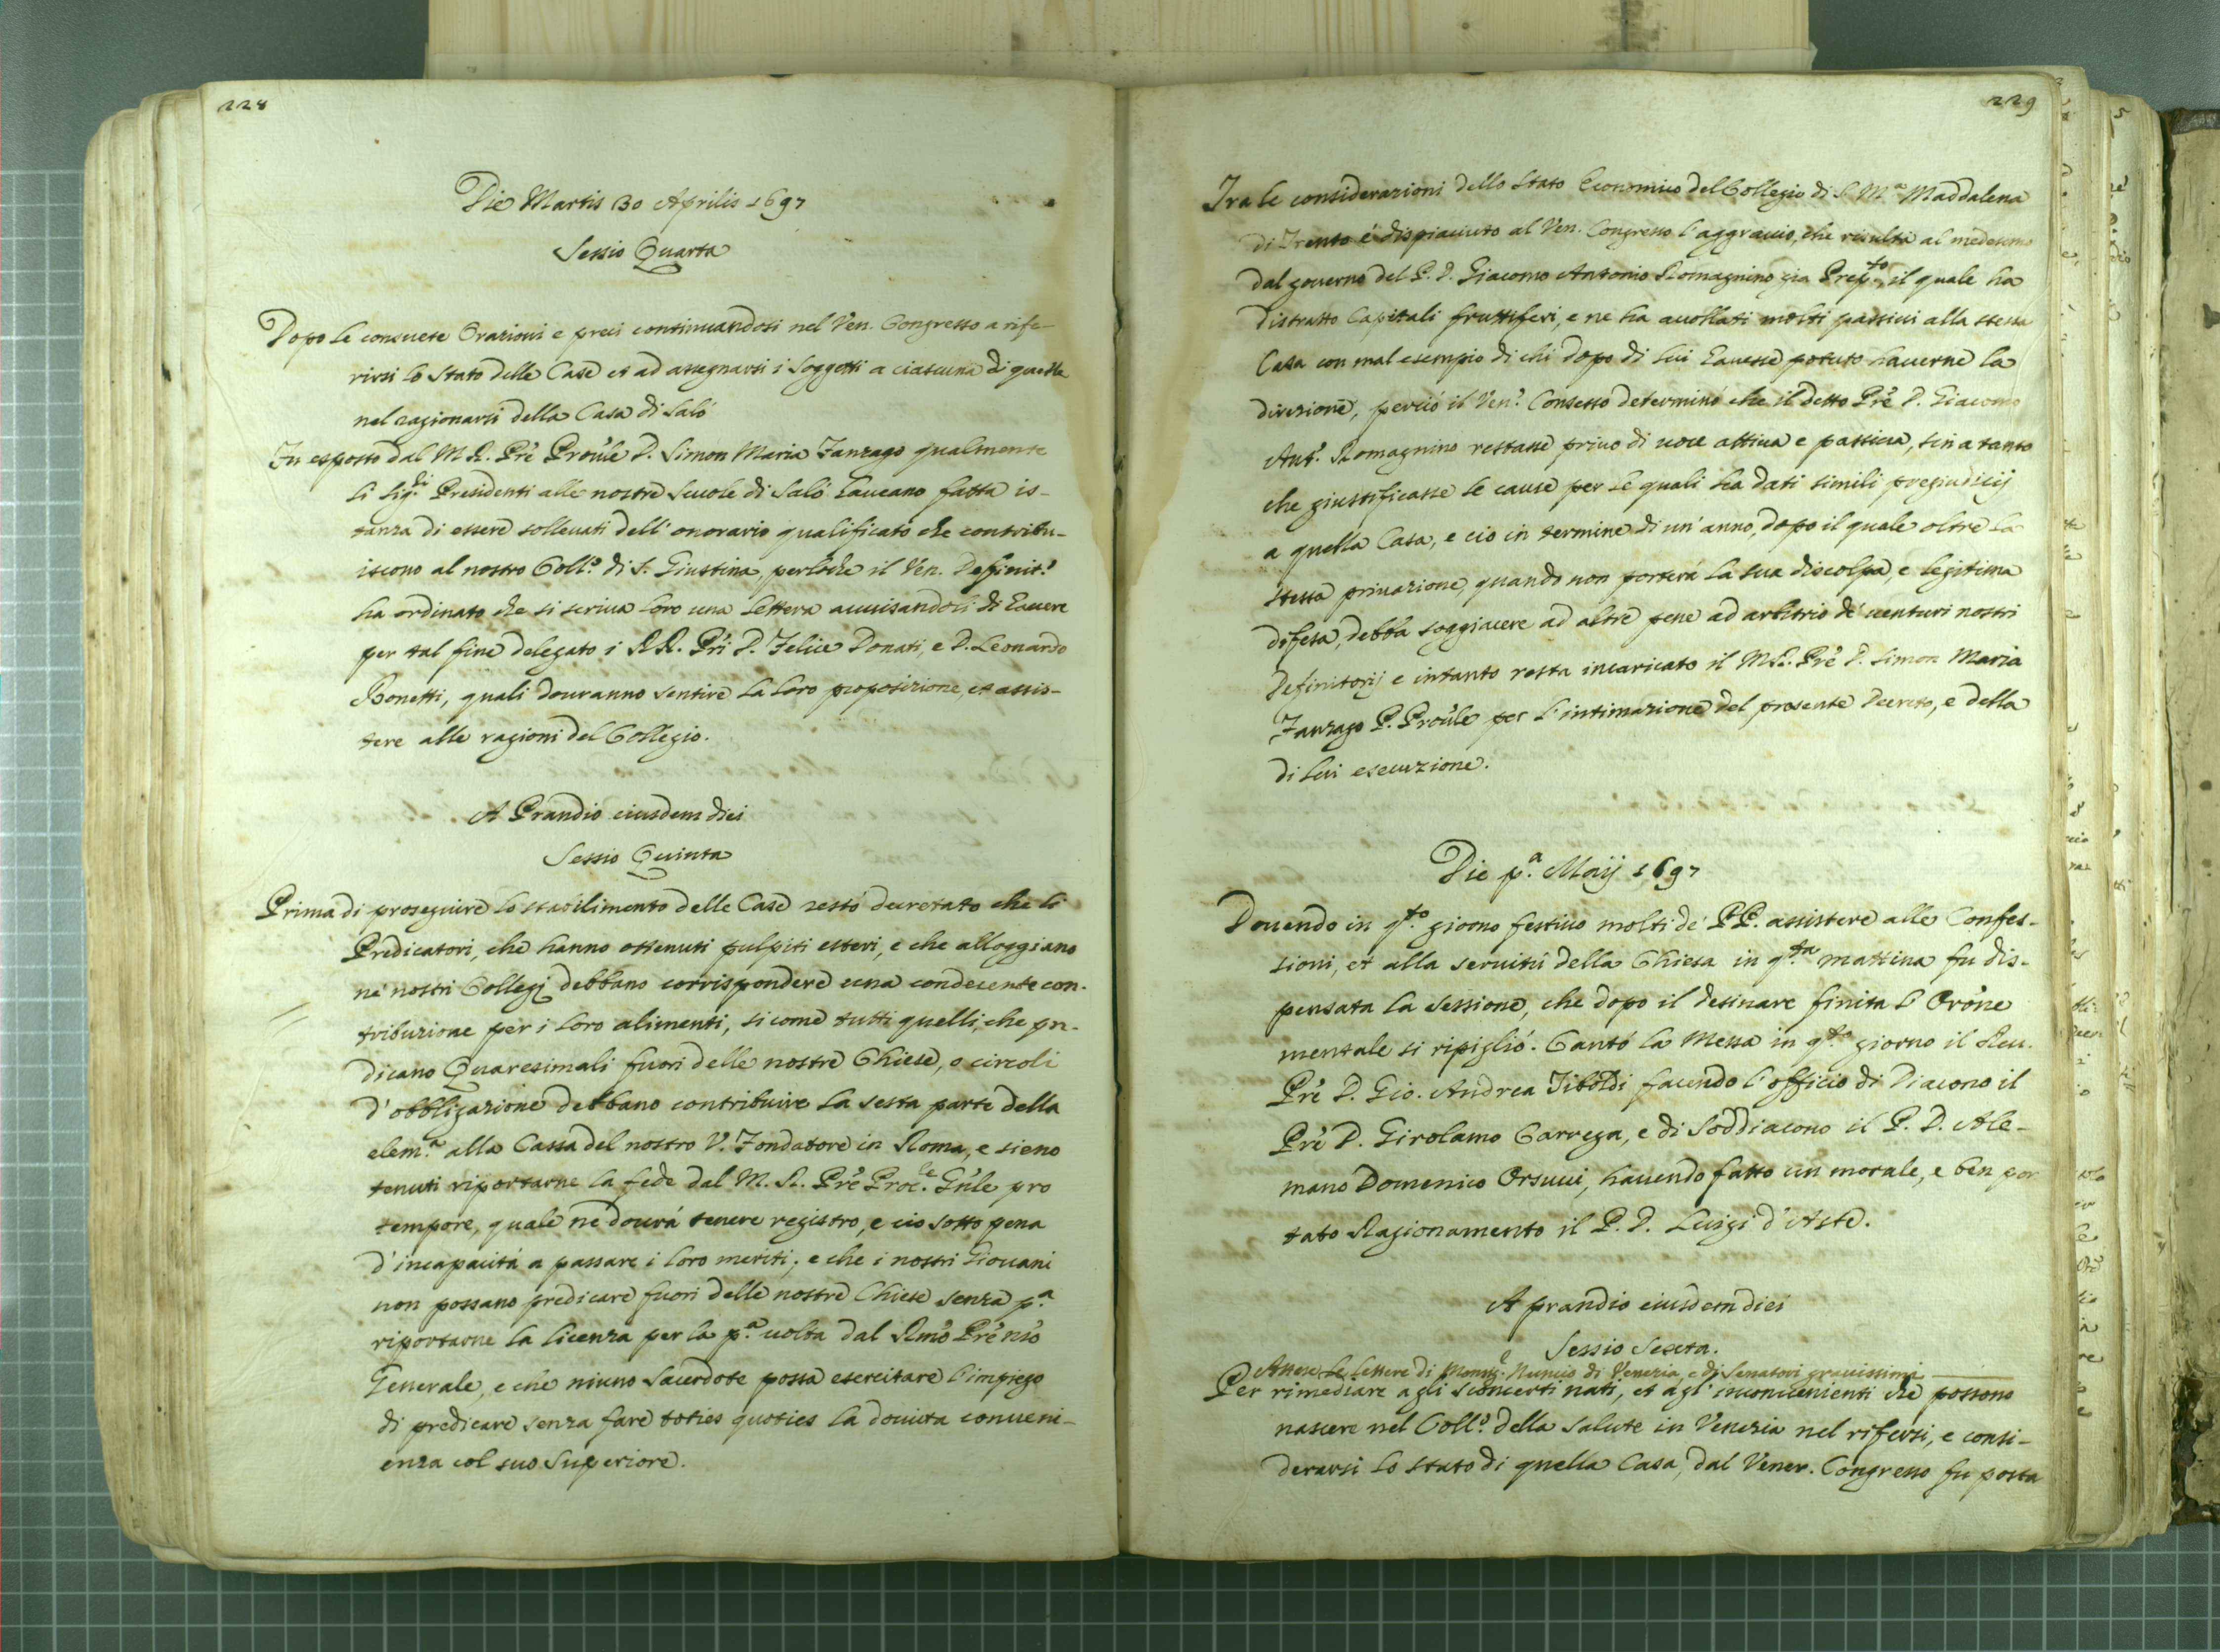 228
Die Martis 30 Aprilis 1697
Sessio Quarta
Dopo le consuete Orazioni e preci continuandosi nel Ven. Congresso a rife-
rirsi lo Stato delle Case et ad assegnarsi i Soggetti a ciascuna di quelle
nel ragionarsi della Casa di Salò
Fu esposto dal M. R. Prē Provīle D. Simon Maria Zanzago qualmente
li Sig.ri Presidenti alle nostre Scuole di Salò haveano fatta is-
tanza di essere sollevati dell'onorario qualificato che contribu-
iscono al nostro Coll.o di S. Giustina, perloche il Ven. Definit.o
ha ordinato che si scriva loro una lettera avvisandoli di havere
per tal fine delegato i RR. Pri D. Felice Donati, e D. Leonardo
Bonetti, quali dovranno sentire la loro proposizione, et assis-
tere alle ragioni del Collegio.
A Prandio eiusdem diei
Sessio Quinta
Prima di proseguire lo stabilimento delle Case restò decretato che li
Predicatori, che hanno ottenuti pulpiti esteri, e che alloggiano
ne' nostri Collegj debbano corrispondere una condecente con-
tribuzione per i loro alimenti, sicome tutti quelli, che pre-
dicano Quaresimali fuori delle nostre Chiese, o circoli
d'obbligazione debbano contribuire la sesta parte della
elem.a alla Cassa del nostro V. Fondatore in Roma, e sieno
tenuti riportarne la fede dal M. R. Prē Proc.le Gn̄le pro
tempore, quale ne dovrà tenere registro, e ciò sotto pena
d'incapacità a passare i loro meriti; e che i nostri Giovani
non possano predicare fuori delle nostre Chiese senza p.a
riportarne la licenza per la p.a volta dal Rm̄o Prē nr̄o
Generale, e che niuno Sacerdote possa esercitare l'impiego
di predicare senza fare toties quoties la dovuta conveni-
enza col suo Superiore.
229
Tra le considerazioni dello Stato Economico del Collegio di S. M.a Maddalena
di Trento è dispiaciuto al Ven. Congresso l'aggravio, che risulta al medesimo
dal governo del P. D. Giacomo Antonio Romagnino già Prep.to, il quale ha
distratto Capitali fruttiferi, e ne ha avollati molti passivi alla stessa
Casa con mal esempio di chi dopo di lui havesse potuto haverne la
direzione, perciò il Ven.o Consesso determinò che il detto Prē D. Giacomo
Ant.o Romagnino restasse privo di voce attiva e passiva, sin a tanto
che giustificasse le cause per le quali ha dati simili pregiudicij
a quella Casa, e ciò in termine di un'anno, dopo il quale oltre la
stessa privazione, quando non porterà la sua discolpa, e legitima
difesa, debba soggiacere ad altre pene ad arbitrio de' venturi nostri
Definitorij e intanto resta incaricato il M.R. Prē D. Simon Maria
Zanzago P. Provīle per l'intimazione del presente Decreto, e della
di lui esecuzione.
Die p.a Maij 1697
Dovendo in q.to giorno festivo molti de' PP. assistere alle Confes-
sioni, et alla servitù della Chiesa in q.ta mattina fu dis-
pensata la Sessione, che dopo il desinare finita l'Orōne
mentale si ripigliò. Cantò la Messa in q.to giorno il Rev.
Prē D. Gio. Andrea Tiboldi facendo l'officio di Diacono il
Prē D. Girolamo Carrega, e di Soddiacono il P. D. Ale-
mano Domenico Orsucci, havendo fatto un morale, e ben por
tato Ragionamento il P. D. Luigi d'Aste.
A prandio eiusdem diei
Sessio Sexta.
Attese le lettere di Mons.e Nuncio di Venezia, e di Senatori gravissimi
Per rimediare agli sconcerti nati, et agl'inconvenienti che possono
nascere nel Coll.o della Salute in Venezia nel rifersi, e consi-
derarsi lo stato di quella Casa, dal Vener. Congresso fu posta